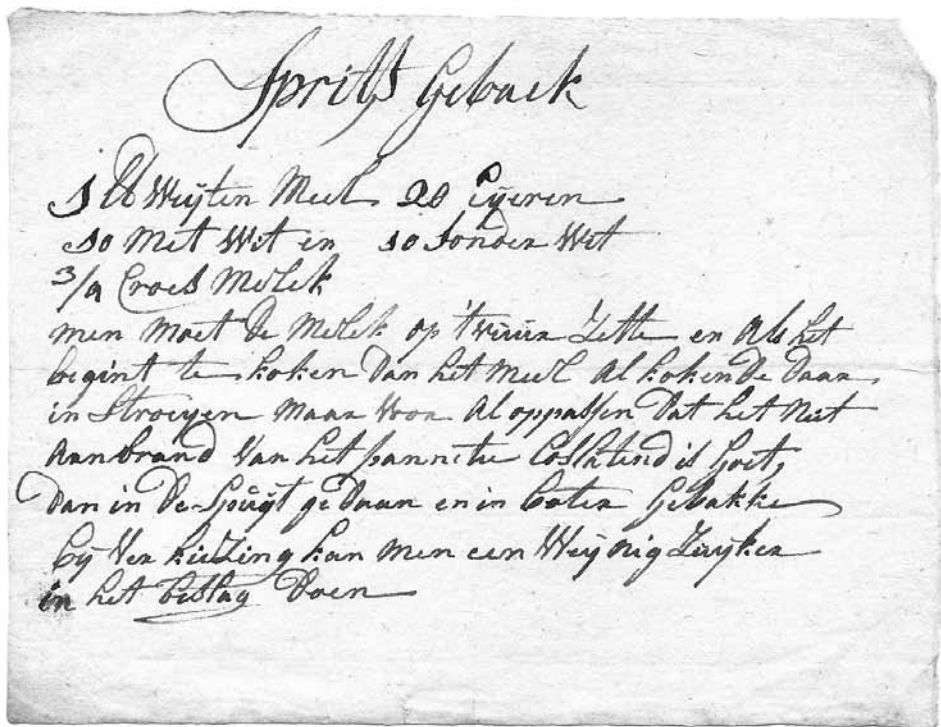 Sprits Geback
1 ℔ Weijten Meel 20 Eijeren
10 Met Wit en 10 Sonder Wit
3/4 Croes Melek
men moet de Melek op 't vuur Zette en Als het
begint te koken dan het Meel Al kokende daar
in Stroeyen maar voor Al oppassen dat het niet
Aanbrand Van het pannetie Loslatend is Goet,
dan in de Spuijt gedaan en in boter Gebakke
bij Verkiezing kan men een Weijnig Zuijker
in het beslag doen